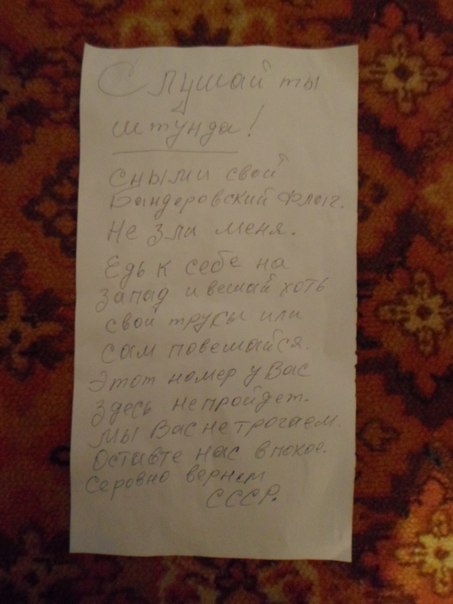 Слушай ты
штунда!
Сными свой
Бандеровский Флаг.
Не зли меня.
Едь к себе на
запад и вешай хоть
свои трусы или
сам повешайся.
Этот номер у Вас
здесь непройдет.
Мы Вас не трогаем.
Оставте нас впокое.
Серовно вернем
СССР.